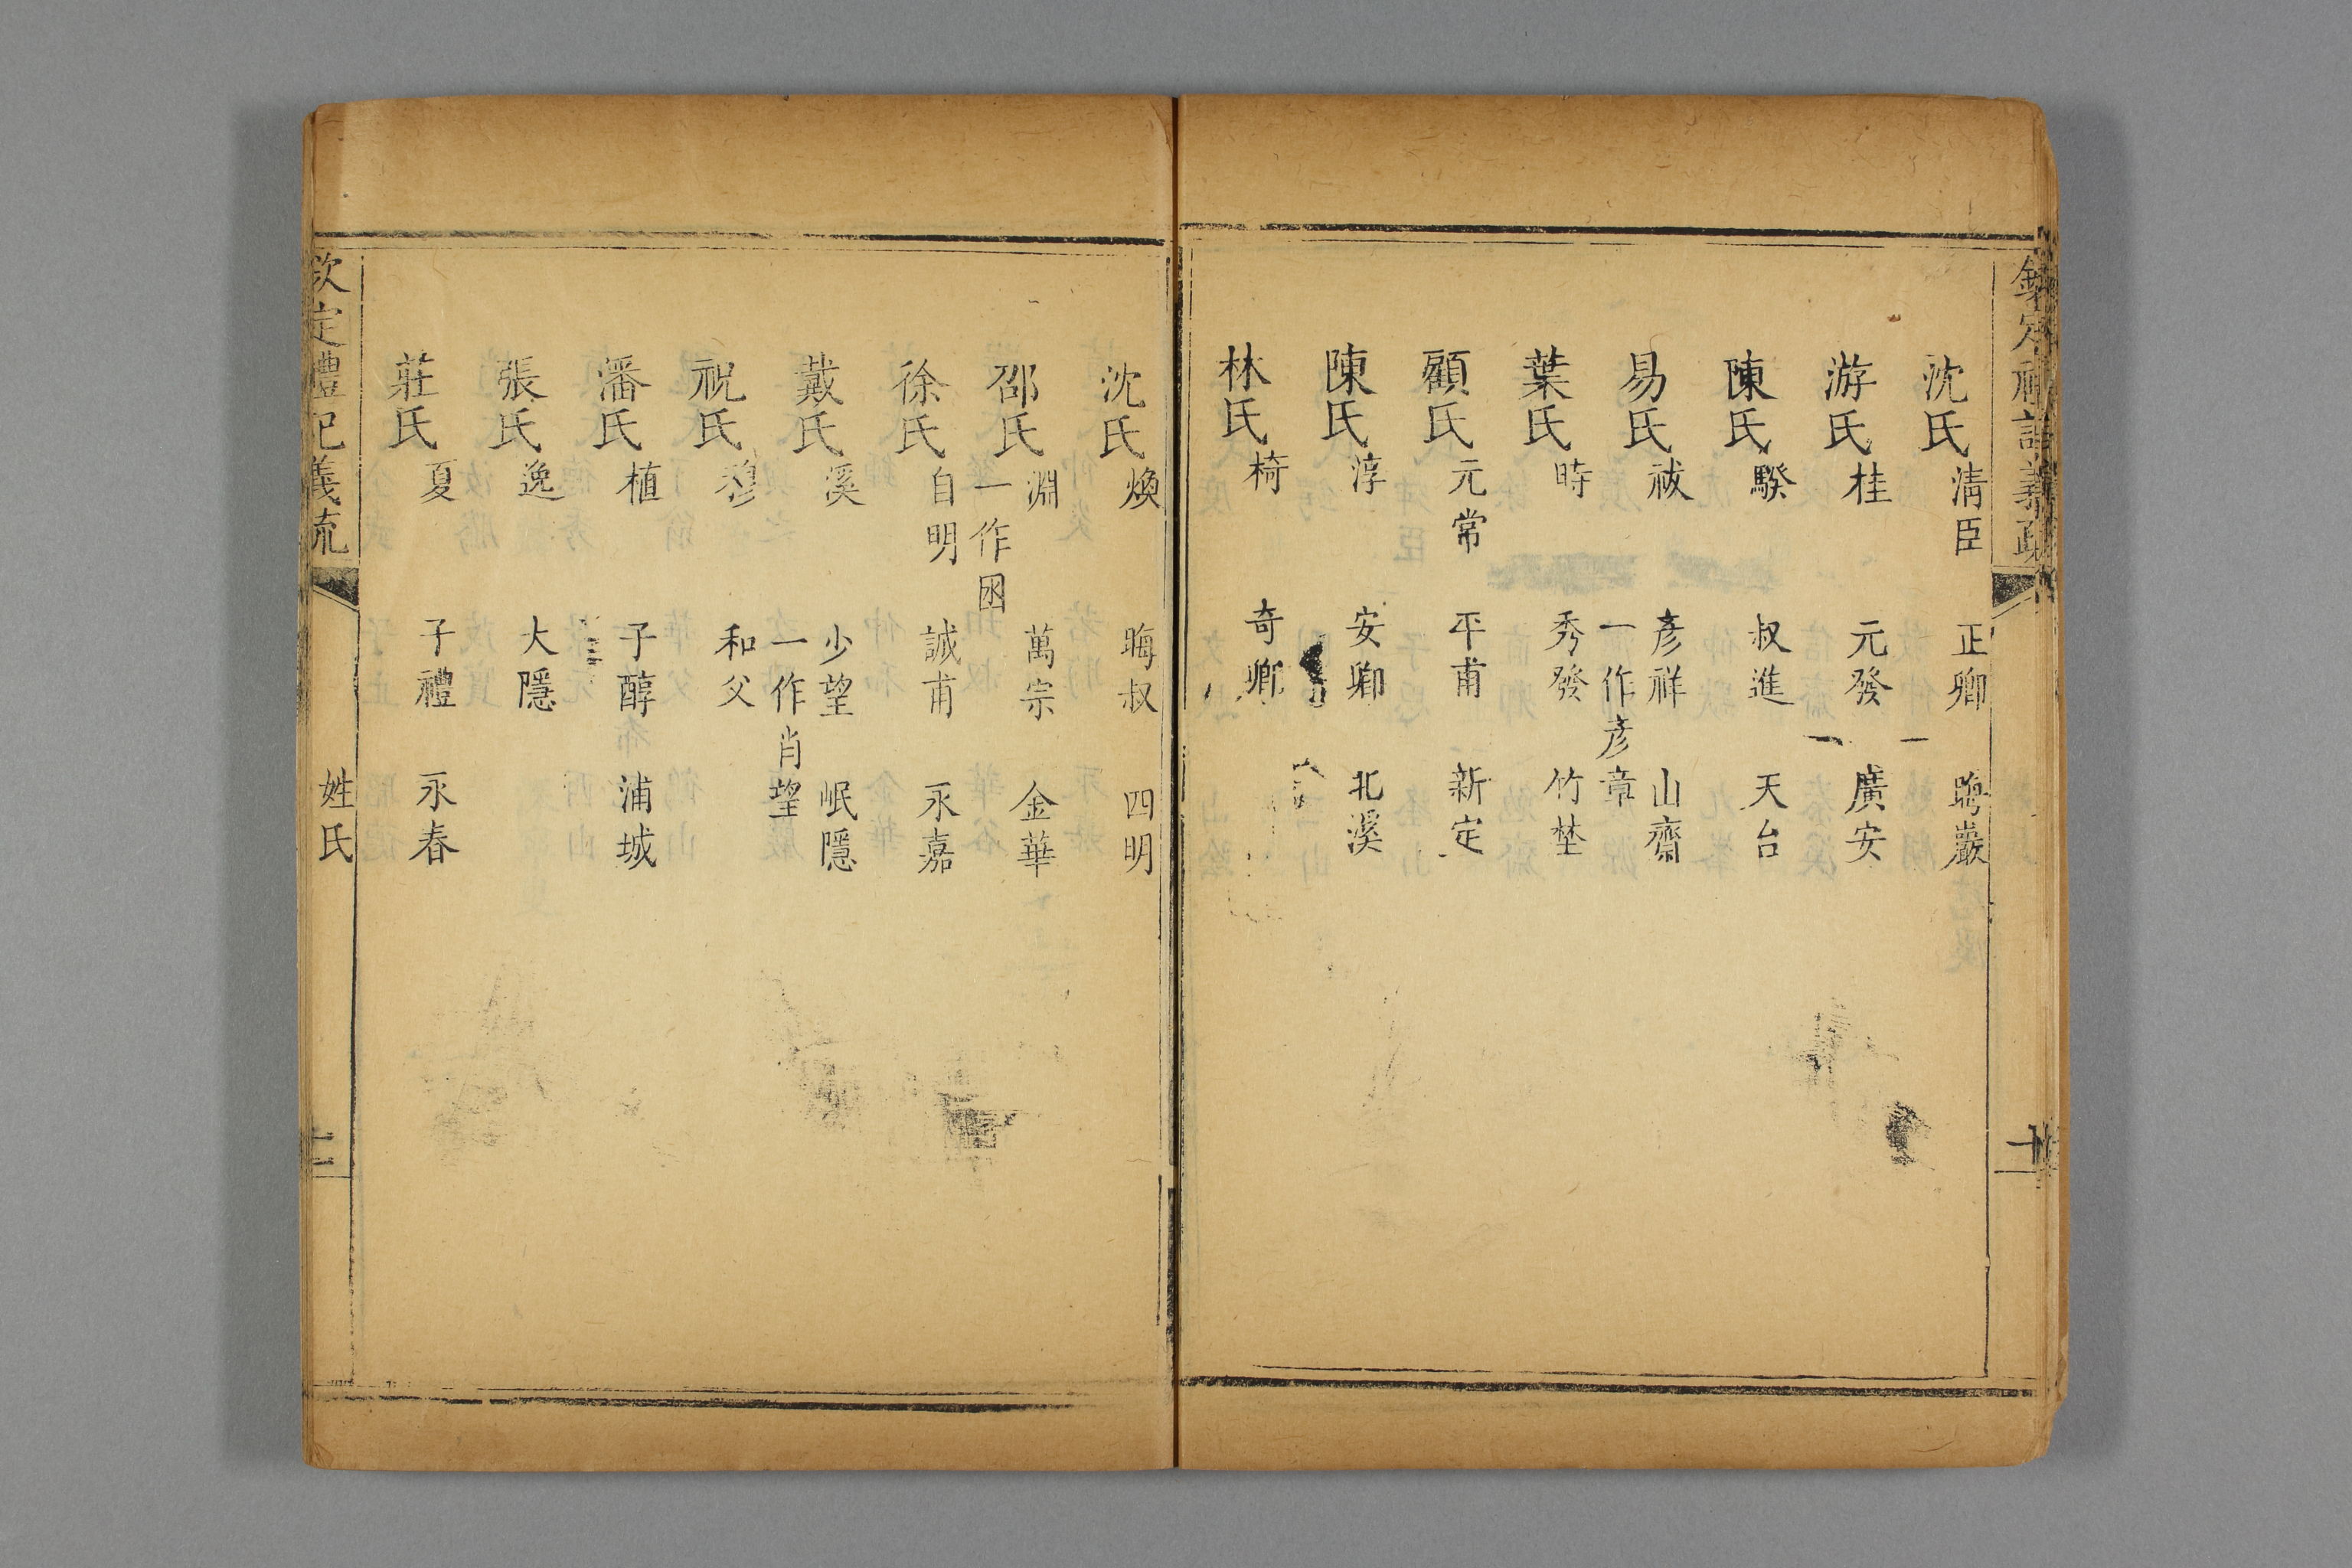 欽定禮記義疏
沈氏清臣 正卿 晦巖
游氏桂 元發 廣安
陳氏騤 叔進 天台
易氏祓 彥祥 山齋
一作彥章
葉氏時 秀發 竹埜
顧氏元常 平甫 新定
陳氏淳 安卿 北溪
林氏椅 奇卿
沈氏煥 晦叔 四明
邵氏淵 萬宗 金華
一作囦
徐氏自明 誠甫 永嘉
戴氏溪 少望 岷隱
一作肖望
祝氏穆 和父
潘氏植 子醇 浦城
張氏逸 大隱
莊氏夏 子禮 永春
欽定禮記義疏 姓氏